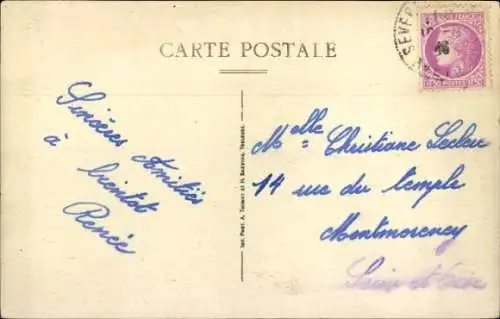 CARTE POSTALE
Sincères Amitiés
à bientot
Renée
Melle Christiane Lecleu
14 rue du temple
Montmorency
Seine et Oise